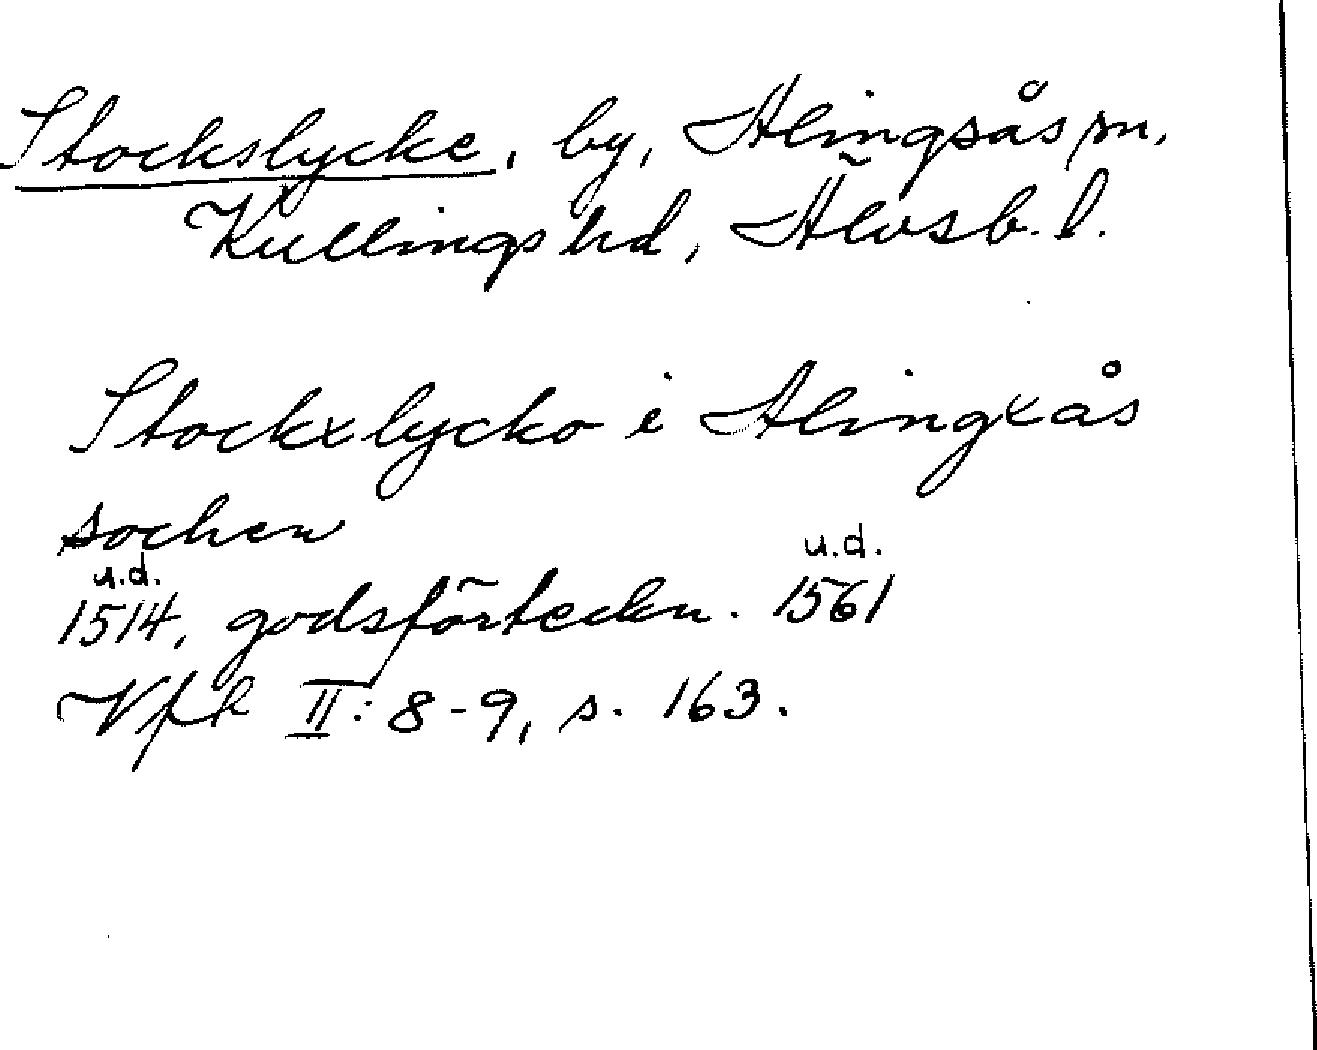 Stockslycke, by, Alingsås sn,
Kullings hd, Älvsb. l.
Stockxlycko i Alingxås
sochen
u.d. u.d.
1514, godsförteckn. 1561
II: 8-9, s. 163.